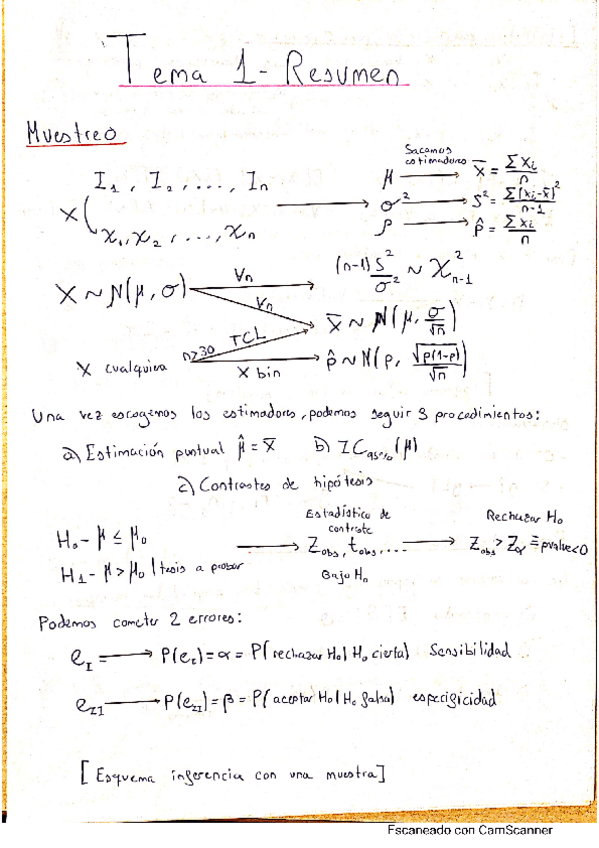 Tema 1 - Resumen
Muestreo
Sacamos estimadores
I₁, I₂, ..., Iₙ
X
x₁, x₂, ..., xₙ
μ → x̄ = Σxᵢ/n
σ² → S² = Σ(xᵢ-x̄)²/n-1
p → p̂ = Σxᵢ/n
X ~ N(μ, σ)
∀n
(n-1)S²/σ² ~ χ²ₙ₋₁
∀n
x̄ ~ N(μ, σ/√n)
X cualquiera
n>30
TCL
X bin
p̂ ~ N(p, √p(1-p)/√n)
Una vez escogemos los estimadores, podemos seguir 3 procedimientos:
a) Estimación puntual μ̂ = x̄ b) IC₉₅% (μ)
c) Contrastes de hipótesis
H₀ - μ ≤ μ₀
H₁ - μ > μ₀ | tesis a probar
Estadístico de contraste
Z_obs, t_obs, ...
Bajo H₀
Rechazar H₀
Z_obs > Z_α ≡ pvalue<0
Podemos cometer 2 errores:
e_I → P(e_I) = α = P(rechazar H₀ | H₀ cierta) Sensibilidad
e_II → P(e_II) = β = P(aceptar H₀ | H₀ falsa) especificidad
[Esquema inferencia con una muestra]
Escaneado con CamScanner